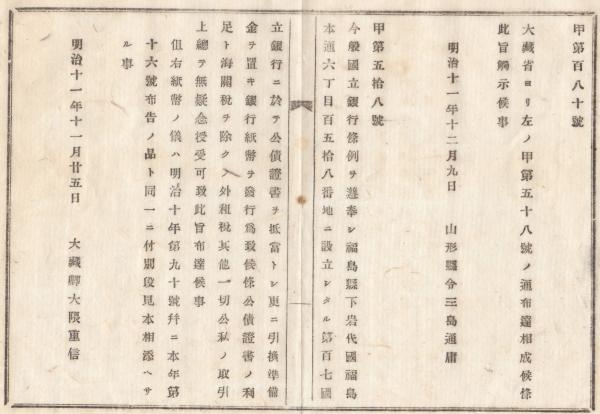 甲第百八十號
大藏省ヨリ左ノ甲第五十八號ノ通布達相成候條
此旨觸示候事
明治十一年十二月九日　山形縣令三島通庸
甲第五拾八號
今般國立銀行條例ヲ遵奉シ福島縣下岩代國福島
本通六丁目百五拾八番地ニ設立シタル第百七國
立銀行ニ於テ公債證書ヲ抵當トシ更ニ引換準備
金ヲ置キ銀行紙幣ヲ發行爲致候條公債證書ノ利
足ト海關稅ヲ除クノ外租稅其他一切公私ノ取引
上總テ無疑念授受可致此旨布達候事
但右紙幣ノ儀ハ明治十年第九十號幷ニ本年第
十六號布告ノ品ト同一ニ付別段見本相添ヘサ
ル事
明治十一年十一月廿五日　大藏卿大隈重信